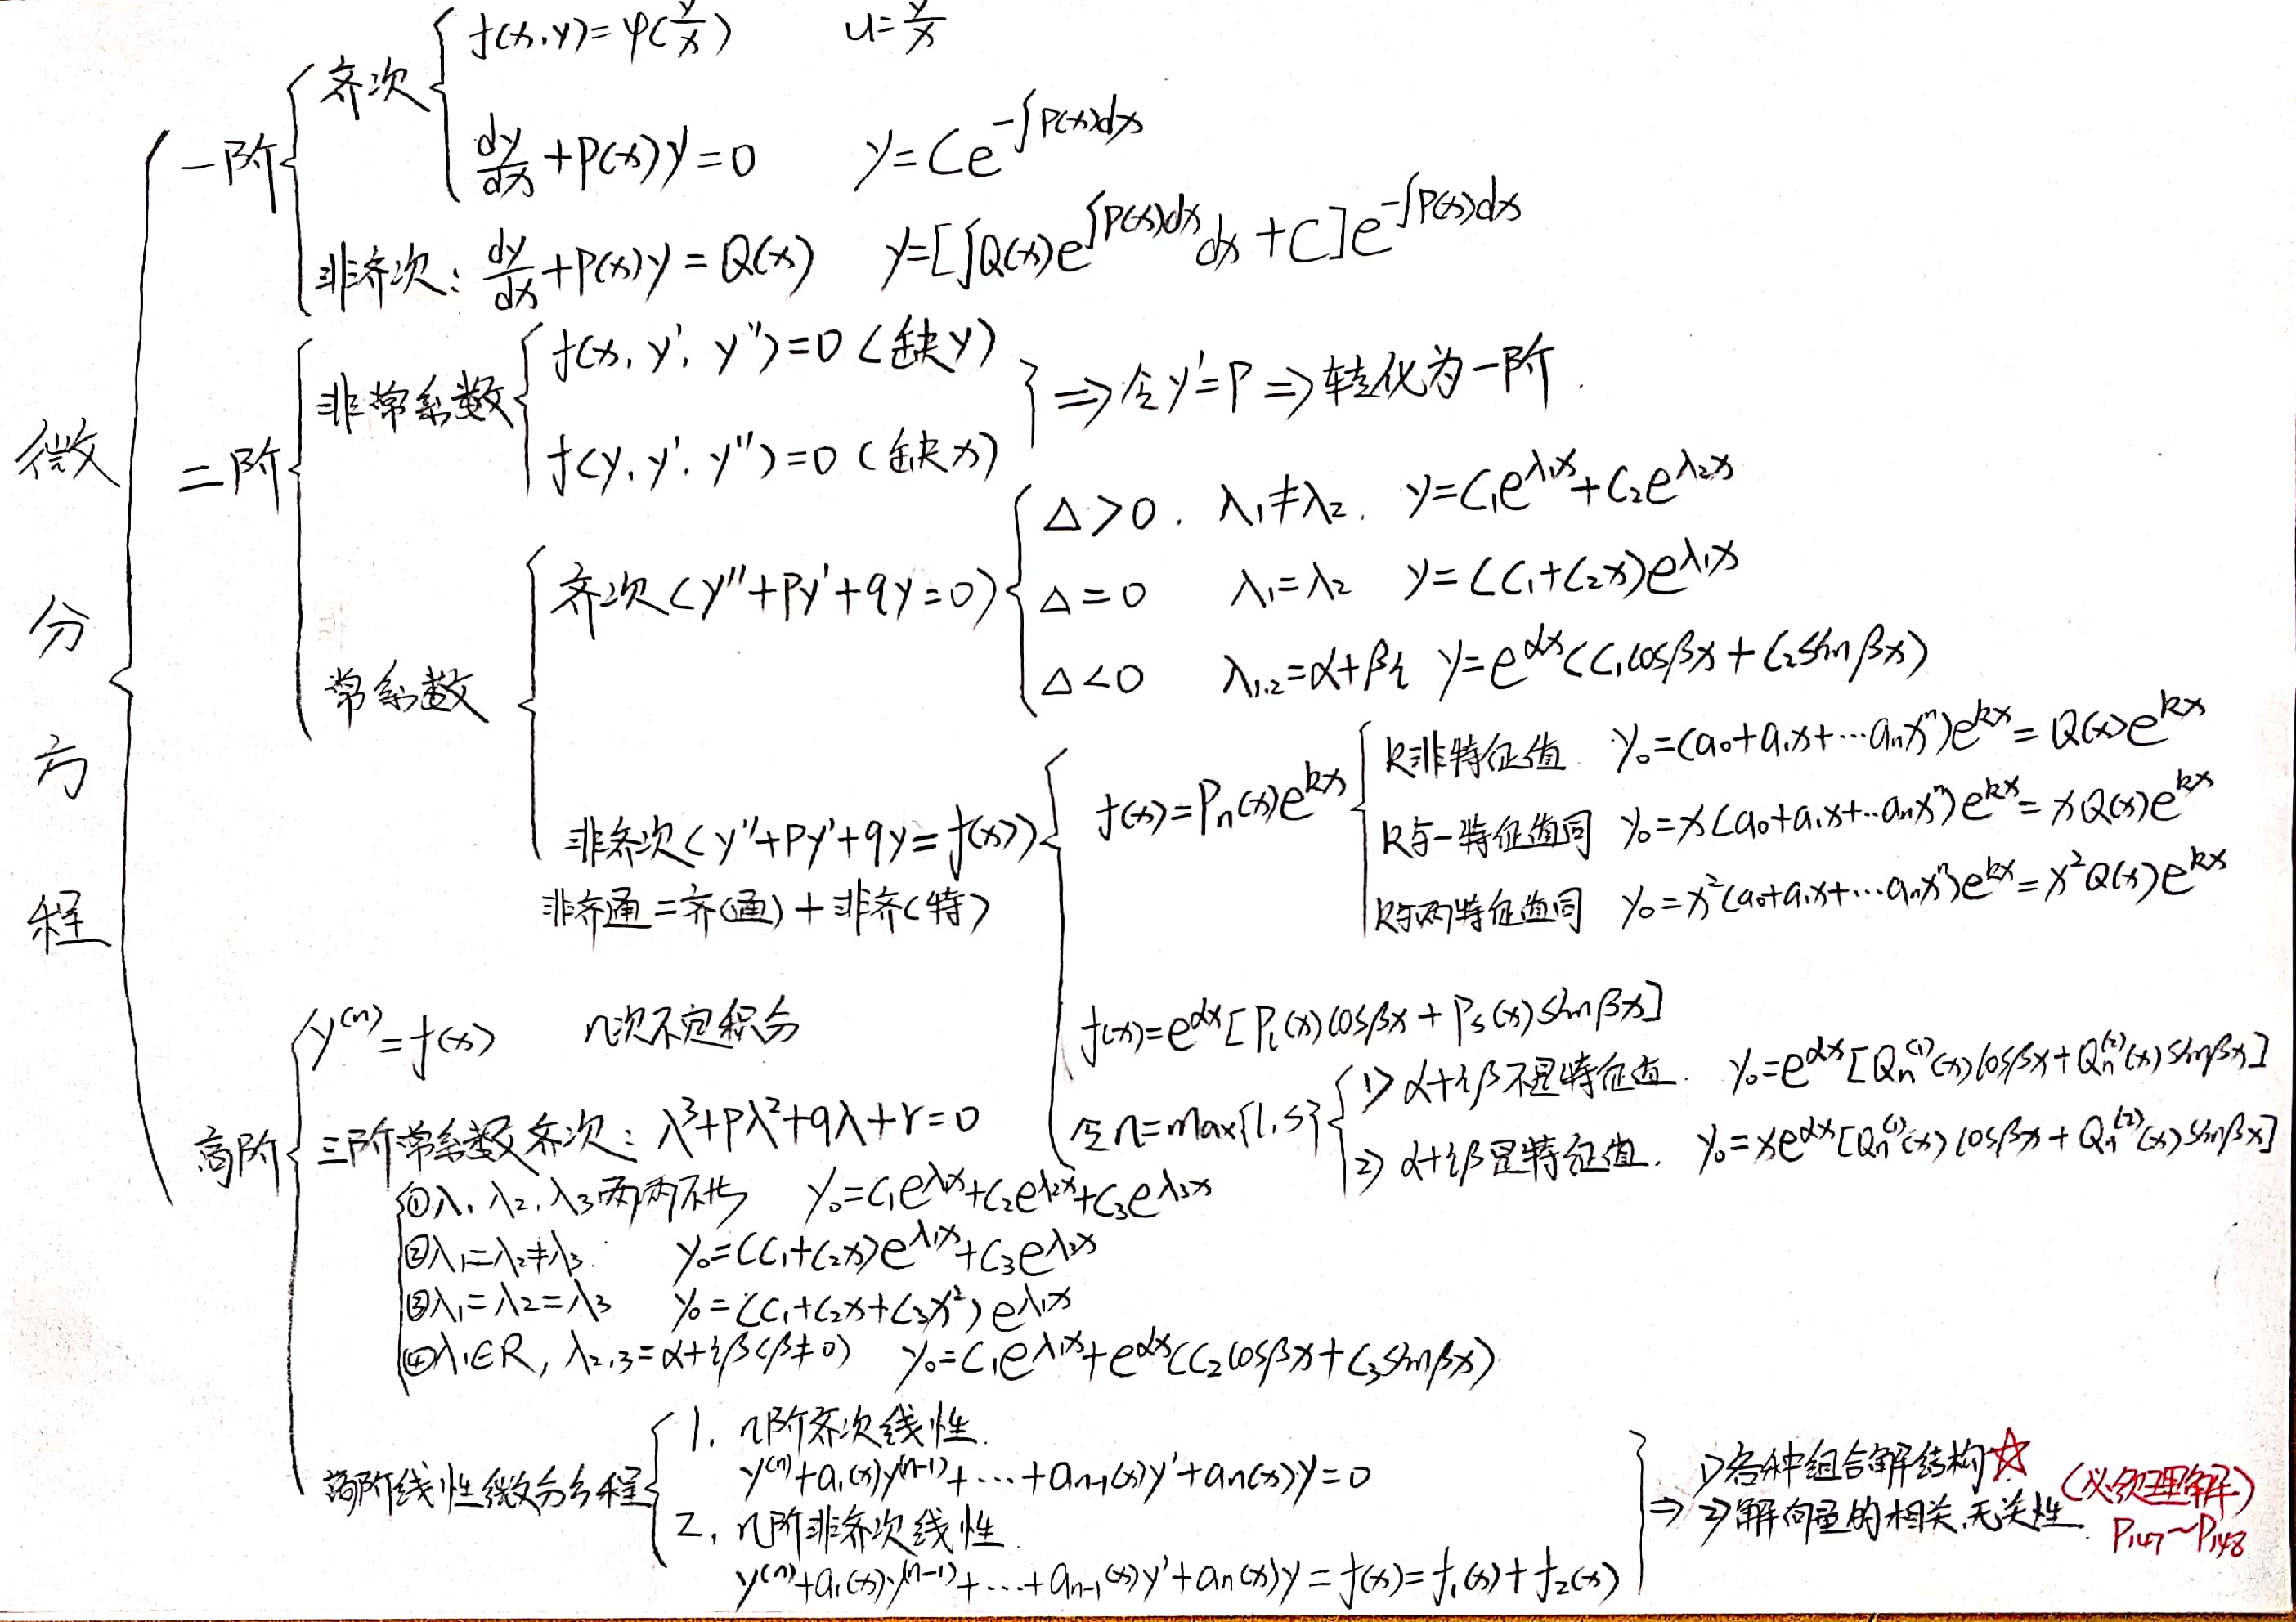 微分方程
一阶
齐次
f(x,y)=φ(y/x) u=y/x
dy/dx+P(x)y=0 y=Ce^{-∫P(x)dx}
非齐次: dy/dx+P(x)y=Q(x) y=[∫Q(x)e^{∫P(x)dx}dx+C]e^{-∫P(x)dx}
二阶
非常系数
f(x,y',y'')=0(缺y)
f(y,y',y'')=0(缺x)
⇒令y'=P⇒转化为一阶.
常系数
齐次(y''+Py'+qy=0)
Δ>0. λ₁≠λ₂. y=C₁e^{λ₁x}+C₂e^{λ₂x}
Δ=0 λ₁=λ₂ y=(C₁+C₂x)e^{λ₁x}
Δ<0 λ₁.₂=α+βi y=e^{αx}(C₁cosβx+C₂sinβx)
非齐次(y''+Py'+qy=f(x))
非齐通=齐(通)+非齐(特)
f(x)=Pₙ(x)e^{kx}
k非特征值 y₀=(a₀+a₁x+…aₙxⁿ)e^{kx}=Q(x)e^{kx}
k与一特征值同 y₀=x(a₀+a₁x+…aₙxⁿ)e^{kx}=xQ(x)e^{kx}
k与两特征值同 y₀=x²(a₀+a₁x+…aₙxⁿ)e^{kx}=x²Q(x)e^{kx}
f(x)=e^{αx}[Pₗ(x)cosβx+Pₛ(x)sinβx]
令n=max{l,s}
1) α+iβ不是特征值. y₀=e^{αx}[Qₙ⁽¹⁾(x)cosβx+Qₙ⁽²⁾(x)sinβx]
2) α+iβ是特征值. y₀=xe^{αx}[Qₙ⁽¹⁾(x)cosβx+Qₙ⁽²⁾(x)sinβx]
高阶
y⁽ⁿ⁾=f(x) n次不定积分
三阶常系数齐次: λ³+Pλ²+qλ+r=0
①λ₁,λ₂,λ₃两两不化 y₀=C₁e^{λ₁x}+C₂e^{λ₂x}+C₃e^{λ₃x}
②λ₁=λ₂≠λ₃. y₀=(C₁+C₂x)e^{λ₁x}+C₃e^{λ₃x}
③λ₁=λ₂=λ₃ y₀=(C₁+C₂x+C₃x²)e^{λ₁x}
④λ₁∈R,λ₂,₃=α+iβ(β≠0) y₀=C₁e^{λ₁x}+e^{αx}(C₂cosβx+C₃sinβx)
高阶线性微分方程
1. n阶齐次线性.
y⁽ⁿ⁾+a₁(x)y⁽ⁿ⁻¹⁾+…+aₙ₋₁(x)y'+aₙ(x)y=0
2. n阶非齐次线性.
y⁽ⁿ⁾+a₁(x)y⁽ⁿ⁻¹⁾+…+aₙ₋₁(x)y'+aₙ(x)y=f(x)=f₁(x)+f₂(x)
⇒ 1)各种组合解结构☆
2)解向量的相关.无关性.
(必须理解)
P147~P148